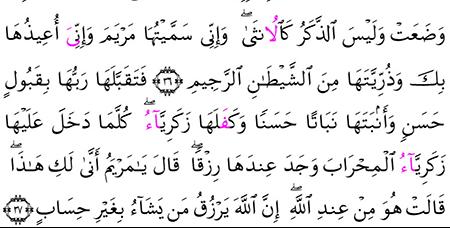 وَضَعَتْ وَلَيْسَ ٱلذَّكَرُ كَٱلُانثَىٰۖ وَإِنِّي سَمَّيْتُهَا مَرْيَمَ وَإِنِّيَ أُعِيذُهَا
بِكَ وَذُرِّيَّتَهَا مِنَ ٱلشَّيْطَٰنِ ٱلرَّجِيمِ ٣٦ فَتَقَبَّلَهَا رَبُّهَا بِقَبُولٍ
حَسَنٍ وَأَنۢبَتَهَا نَبَاتًا حَسَنًا وَكَفَلَهَا زَكَرِيَّآءُۖ كُلَّمَا دَخَلَ عَلَيْهَا
زَكَرِيَّآءُ ٱلْمِحْرَابَ وَجَدَ عِندَهَا رِزْقًاۖ قَالَ يَٰمَرْيَمُ أَنَّىٰ لَكِ هَٰذَاۖ
قَالَتْ هُوَ مِنْ عِندِ ٱللَّهِۖ إِنَّ ٱللَّهَ يَرْزُقُ مَن يَشَآءُ بِغَيْرِ حِسَابٍ ٣٧